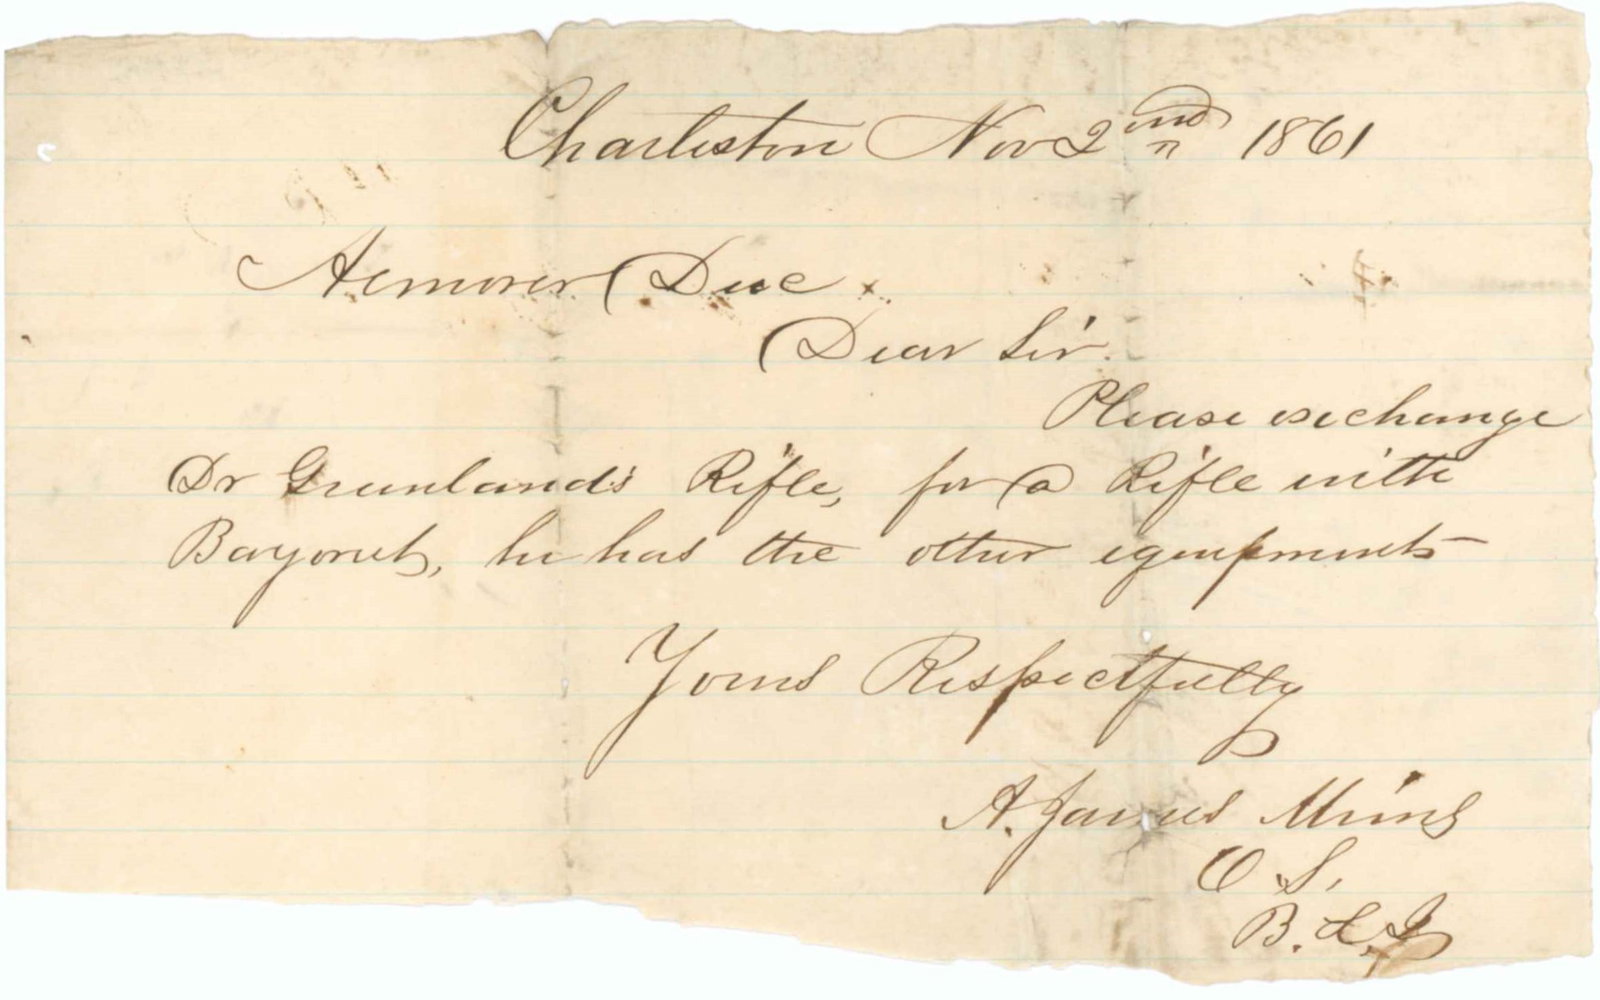 Charleston Nov 2nd 1861
Armorer Duc.
Dear Sir.
Please exchange
Dr Greenland's Rifle, for a Rifle with
Bayonet, he has the other equipments
Yours Respectfully
A. James Mims
O. S.
B. L. I